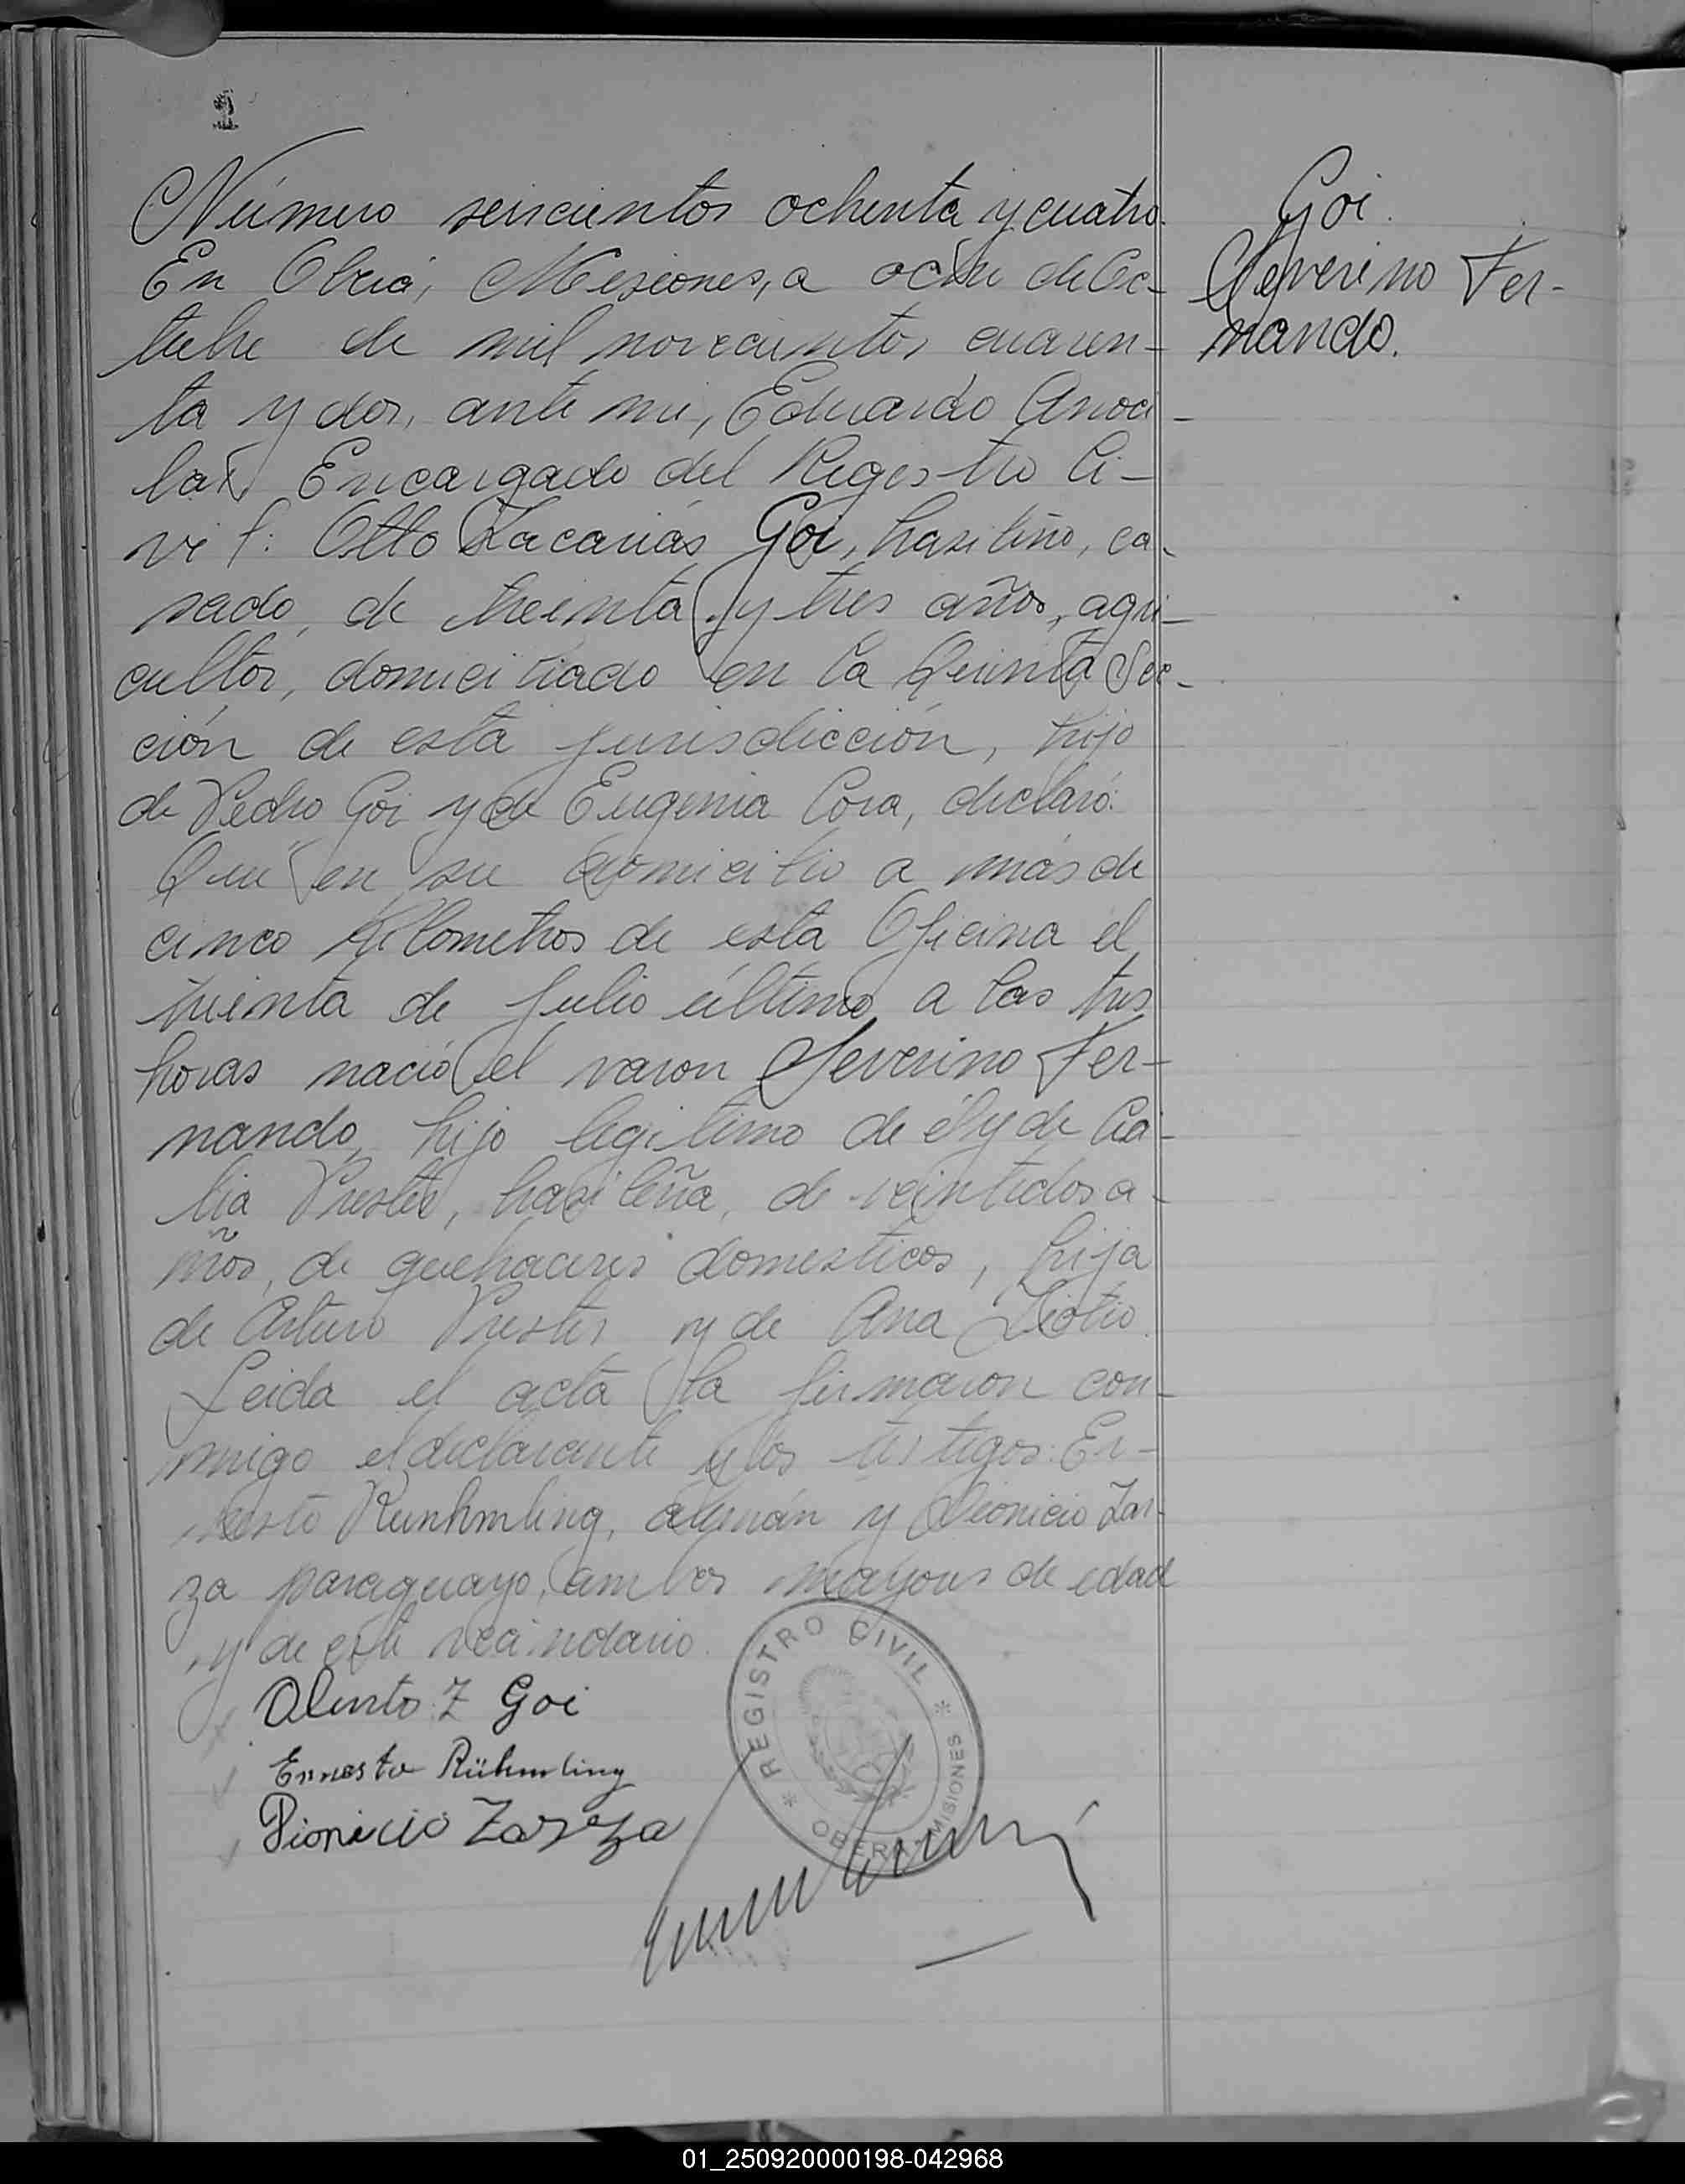 Número seiscientos ochenta y cuatro.
En Oberá, Misiones, a ocho de Oc-
tubre de mil novecientos cuaren-
ta y dos, ante mi, Eduardo
Encargado del Registro Ci-
vil: Otto Zacarias Goi, brasileño, ca-
sado, de treinta y tres años, agri-
cultor, domiciliado en la Quinta Sec-
ción de esta jurisdicción, hijo
de Pedro Goi y de Eugenia Cora, declaró:
Que en su domicilio a más de
cinco kilometros de esta Oficina el
treinta de Julio último a las tres
horas nació el varon Severino Fer-
nando, hijo legitimo de él y de
brasileña, de veintidos a-
ños, de quehaceres domesticos, hija
de Arturo Prester y de Ana
Leida el acta la firmaron con-
migo el declarante y los testigos: Er-
nesto Runhmling, alemán y Dionicio Zar-
za paraguayo, ambos mayores de edad
y de este vecindario.
Goi.
Severino Fer-
nando.
Z Goi
Ernesto Rühmling
Dionicio Zarza
REGISTRO CIVIL
OBERA MISIONES
01_250920000198-042968